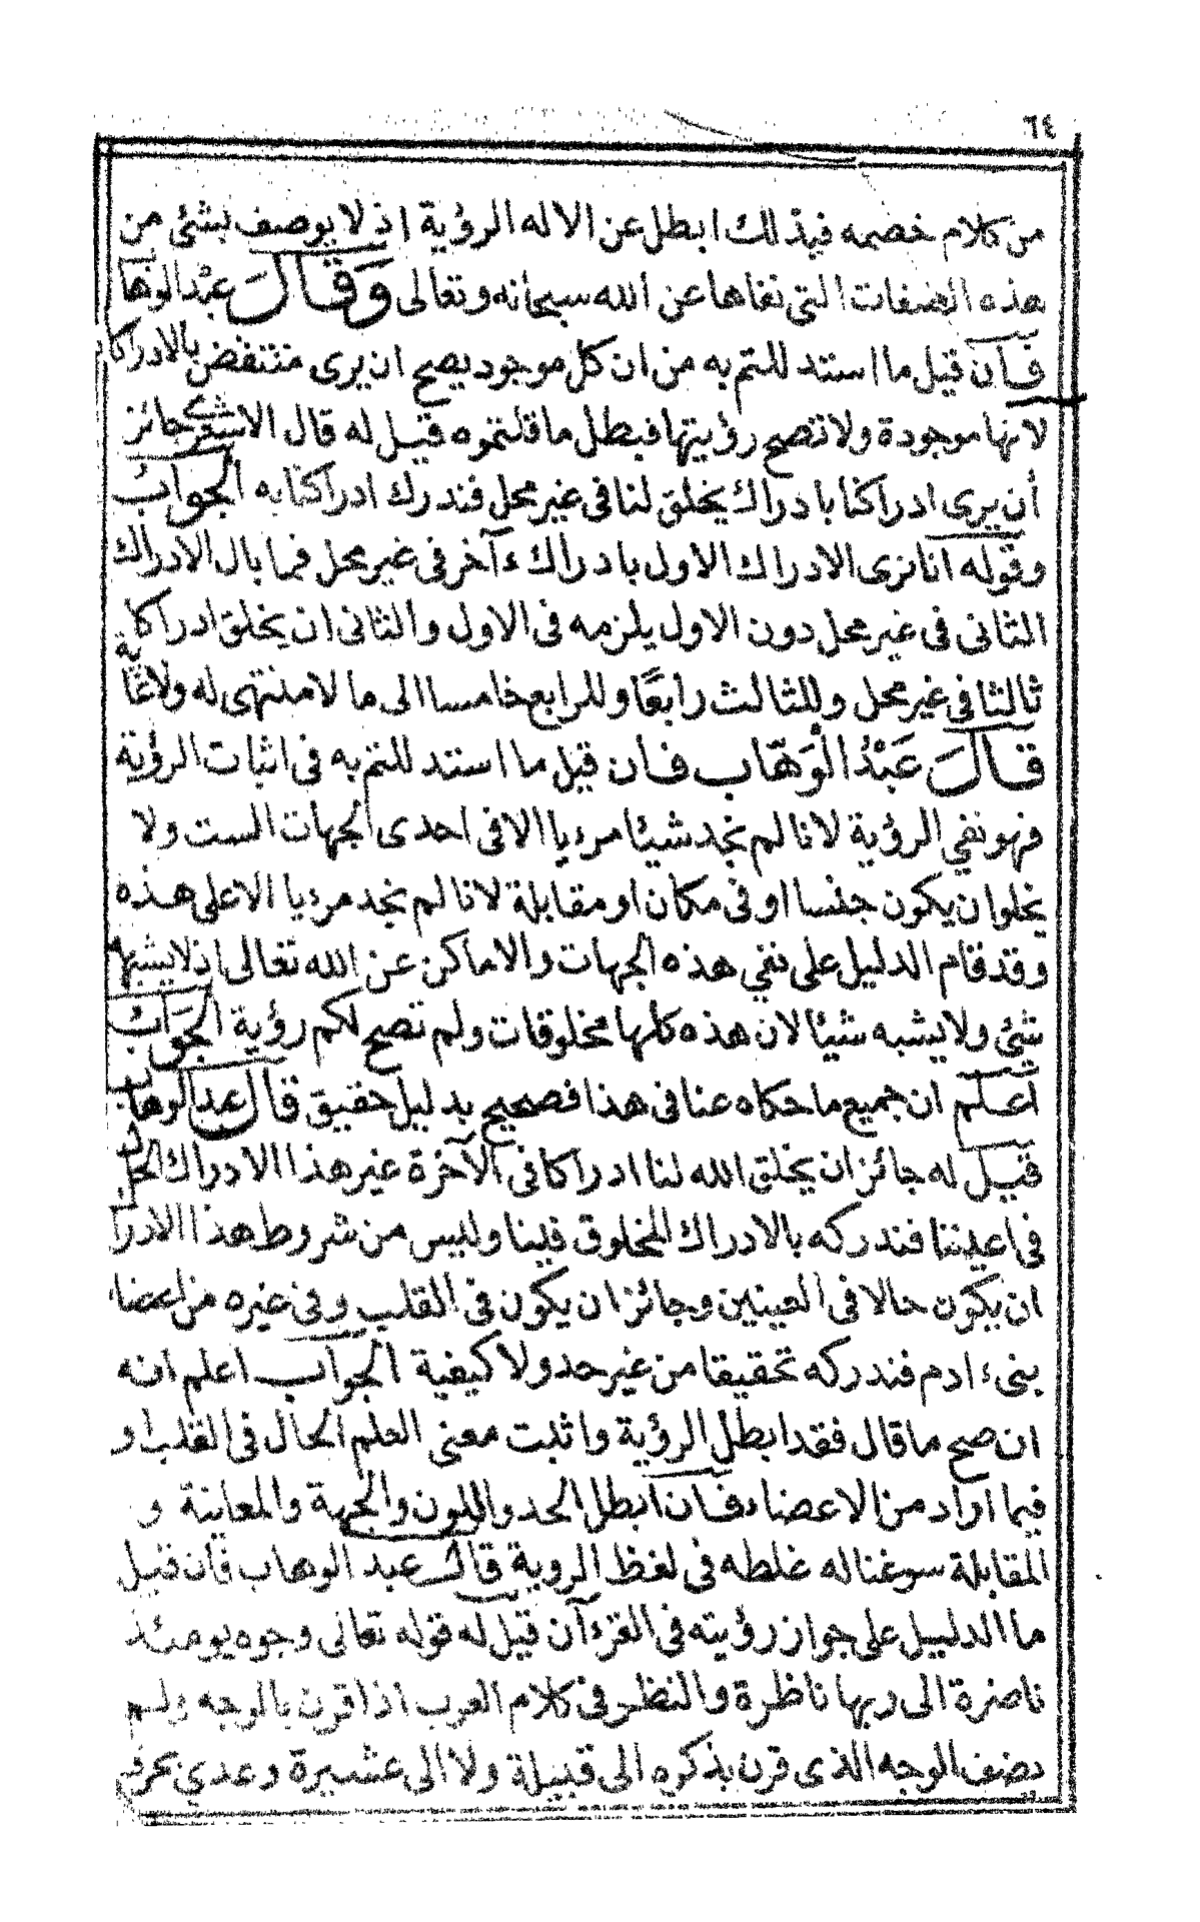 ٦٤
من كلام خصمه فبذلك ابطل عن الاله الرؤية إذ لا يوصف بشئ من
هذه الصفات التي نفاها عن الله سبحانه وتعالى وَقَالَ عبد الوهاب
فان قيل ما استدللتم به من ان كل موجود يصح ان يرى منتقض بالادراكات
لانها موجودة ولا تصح رؤيتها فبطل ما قلتموه قيل له قال الاشعرى جائز
أن يرى ادراكنا بادراك يخلق لنا في غير محل فندرك ادراكنا به الجواب
وقوله انا نرى الادراك الاول بادراك ءآخر في غير محل فما بال الادراك
الثانى فى غير محل دون الاول يلزمه فى الاول والثانى ان يخلق ادراكا
ثالثا في غير محل وللثالث رابعًا وللرابع خامسا الى ما لا منتهى له ولا غاية
قَالَ عَبْدُ الْوَهَّاب فان قيل ما استدللتم به فى اثبات الرؤية
فهو نفي الرؤية لانا لم نجد شيئا مرءيا الا فى احدى الجهات الست ولا
يخلوا ان يكون جنسا او فى مكان او مقابلة لانا لم نجد مرءيا الا على هذه
وقد قام الدليل على نفي هذه الجهات والاماكن عن الله تعالى اذ لا يشبهه
شئ ولا يشبه شيئا لان هذه كلها مخلوقات ولم تصح لكم رؤية الجَوَابُ
اعلم ان جميع ما حكاه عنا فى هذا فصحيح بدليل حقيق قال عبد الوهاب
قيل له جائز ان يخلق الله لنا ادراكا فى الآخرة غير هذا الادراك الحال
فى اعيننا فندركه بالادراك المخلوق فينا وليس من شروط هذا الادراك
ان يكون حالا فى العينين وجائز ان يكون فى القلب وفى غيره من اعضاء
بنىء ادم فندركه تحقيقا من غير حد ولا كيفية الجواب اعلم انه
ان صح ما قال فقد ابطل الرؤية واثبت معنى العلم الحال فى القلب او
فيما اراد من الاعضاء فان ابطل الحد واللون والجهة والمعاينة و
المقابلة سوغنا له غلطه فى لفظ الروية قال عبد الوهاب فان قيل
ما الدليل على جواز رؤيته فى القرءآن قيل له قوله تعالى وجوه يومئذ
ناضرة الى ربها ناظرة والنظر فى كلام العرب اذا قرن بالوجه ولم
يضف الوجه الذى قرن بذكره الى قبيلة ولا الى عشيرة وعدي بحرف